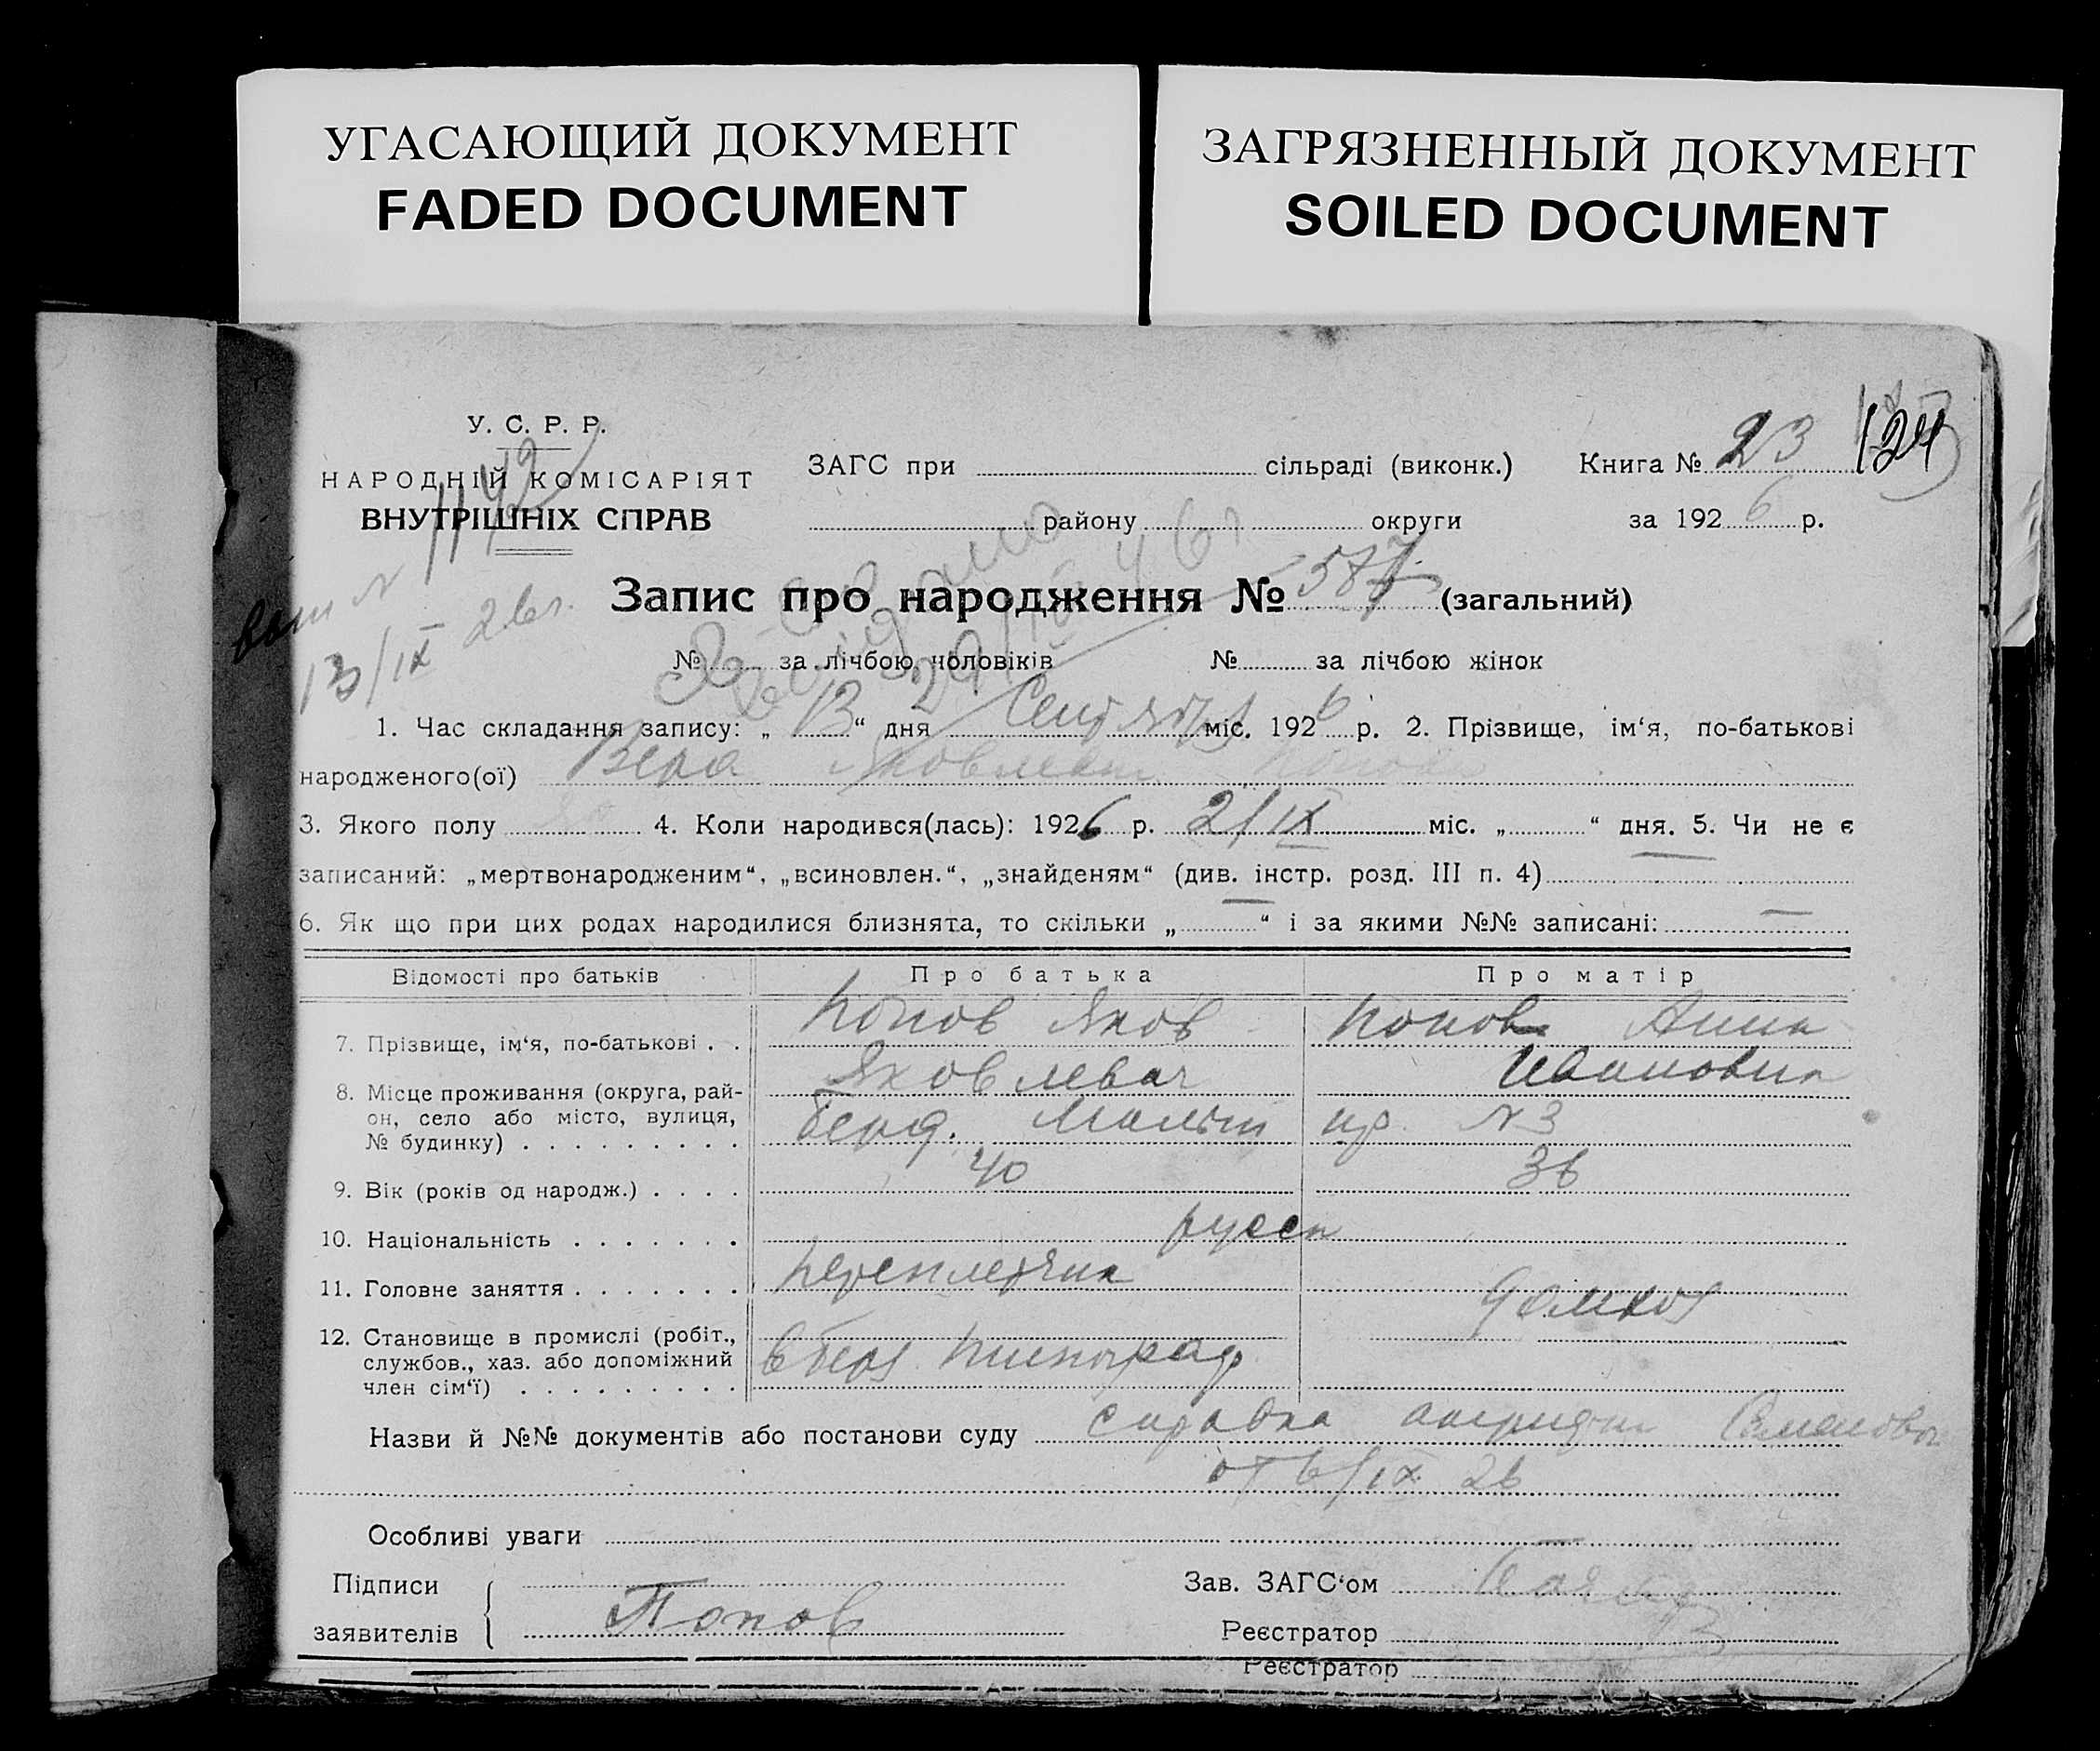 УГАСАЮЩИЙ ДОКУМЕНТ
FADED DOCUMENT
ЗАГРЯЗНЕННЫЙ ДОКУМЕНТ
SOILED DOCUMENT
У. С. Р. Р.
НАРОДНІЙ КОМІСАРІЯТ
ВНУТРІШНІХ СПРАВ
1142
13/IX 26г.
ЗАГС при сільраді (виконк.) Книга № 23 124
району округи за 1926 р.
Запис про народження № 587 (загальний)
№ за лічбою чоловіків № за лічбою жінок
1. Час складання запису: „13“ дня Сентября міс. 1926 р. 2. Прізвище, ім‘я, по-батькові
народженого(ої) Вера Яковлевна
3. Якого полу 4. Коли народився(лась): 1926 р. 2/IX міс. „ “ дня. 5. Чи не є
записаний: „мертвонародженим“, „всиновлен.“, „знайденям“ (див. інстр. розд. III п. 4) —
6. Як що при цих родах народилися близнята, то скільки „—“ і за якими №№ записані: —
Відомості про батьків Про батька Про матір
7. Прізвище, ім‘я, по-батькові . . Попов Яков Яковлевич Попова Анна Ивановна
8. Місце проживання (округа, рай-
он, село або місто, вулиця,
№ будинку) . . . . . . . . . пр. №3
9. Вік (років од народж.) . . . . 40 36
10. Національність . . . . . . . русск
11. Головне заняття . . . . . . . переплетчик домхоз
12. Становище в промислі (робіт.,
службов., хаз. або допоміжний
член сім‘ї) . . . . . . . . .
Назви й №№ документів або постанови суду справка акушерки
от 6/IX 26
Особливі уваги —
Підписи
заявителів Попов
Зав. ЗАГС‘ом
Реєстратор
Реєстратор